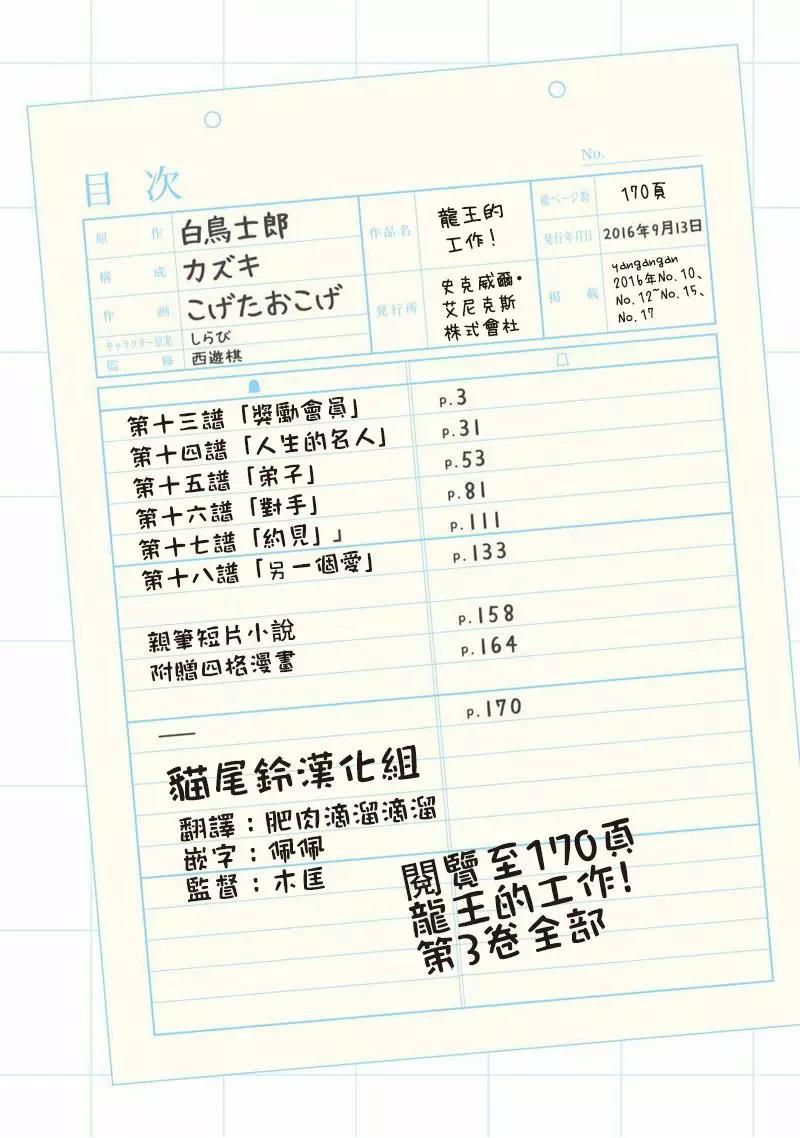 目次
No.
原作 白鳥士郎
構成 カズキ
作画 こげたおこげ
キャラクター原案 しらび
監修 西遊棋
作品名 龍王的
工作！
発行所 史克威爾・
艾尼克斯
株式會社
総ページ数 170頁
発行年月日 2016年9月13日
掲載 yangangan
2016年No.10、
No.12~No.15、
No.17
第十三譜「獎勵會員」 p.3
第十四譜「人生的名人」 p.31
第十五譜「弟子」 p.53
第十六譜「對手」 p.81
第十七譜「約見」」 p.111
第十八譜「另一個愛」 p.133
親筆短片小說 p.158
附贈四格漫畫 p.164
— p.170
貓尾鈴漢化組
翻譯：肥肉滴溜滴溜
嵌字：佩佩
監督：木匡
閱覽至170頁
龍王的工作！
第3卷全部